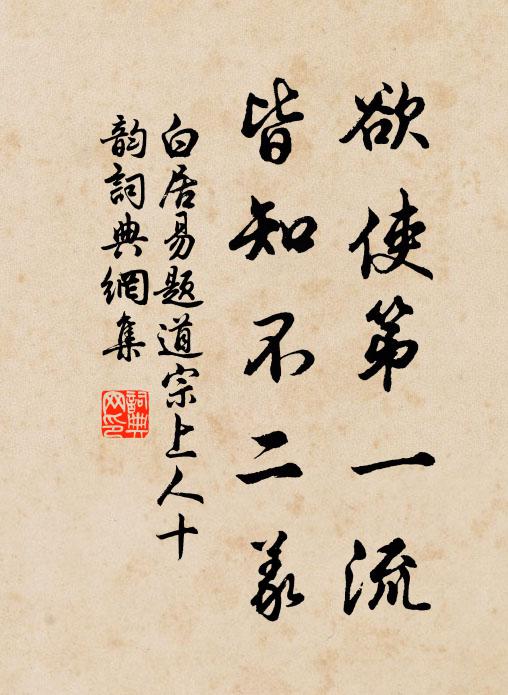 欲使第一流
皆知不二義
白居易题道宗上人十
韵詞典網集
詞典
网印